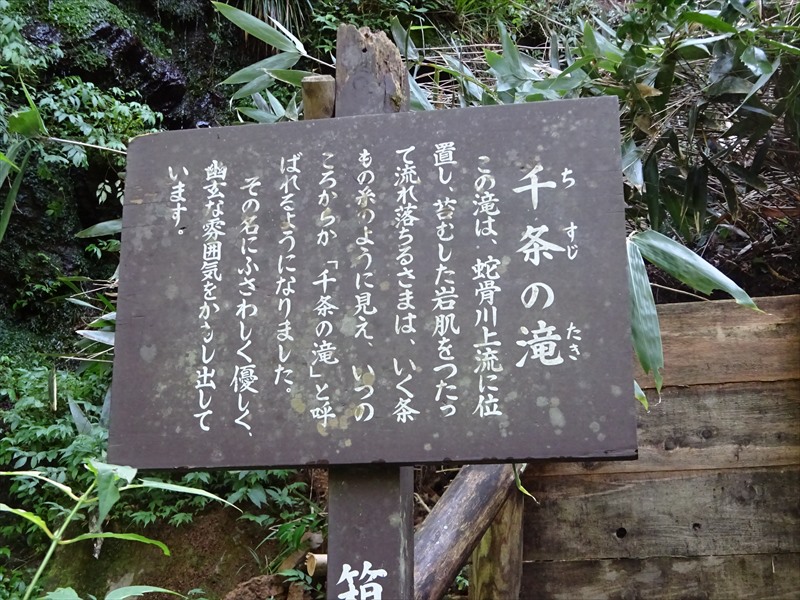 千条の滝
ち すじ たき
この滝は、蛇骨川上流に位
置し、苔むした岩肌をつたっ
て流れ落ちるさまは、いく条
もの糸のように見え、いつの
ころからか「千条の滝」と呼
ばれるようになりました。
その名にふさわしく優しく、
幽玄な雰囲気をかもし出して
います。
箱